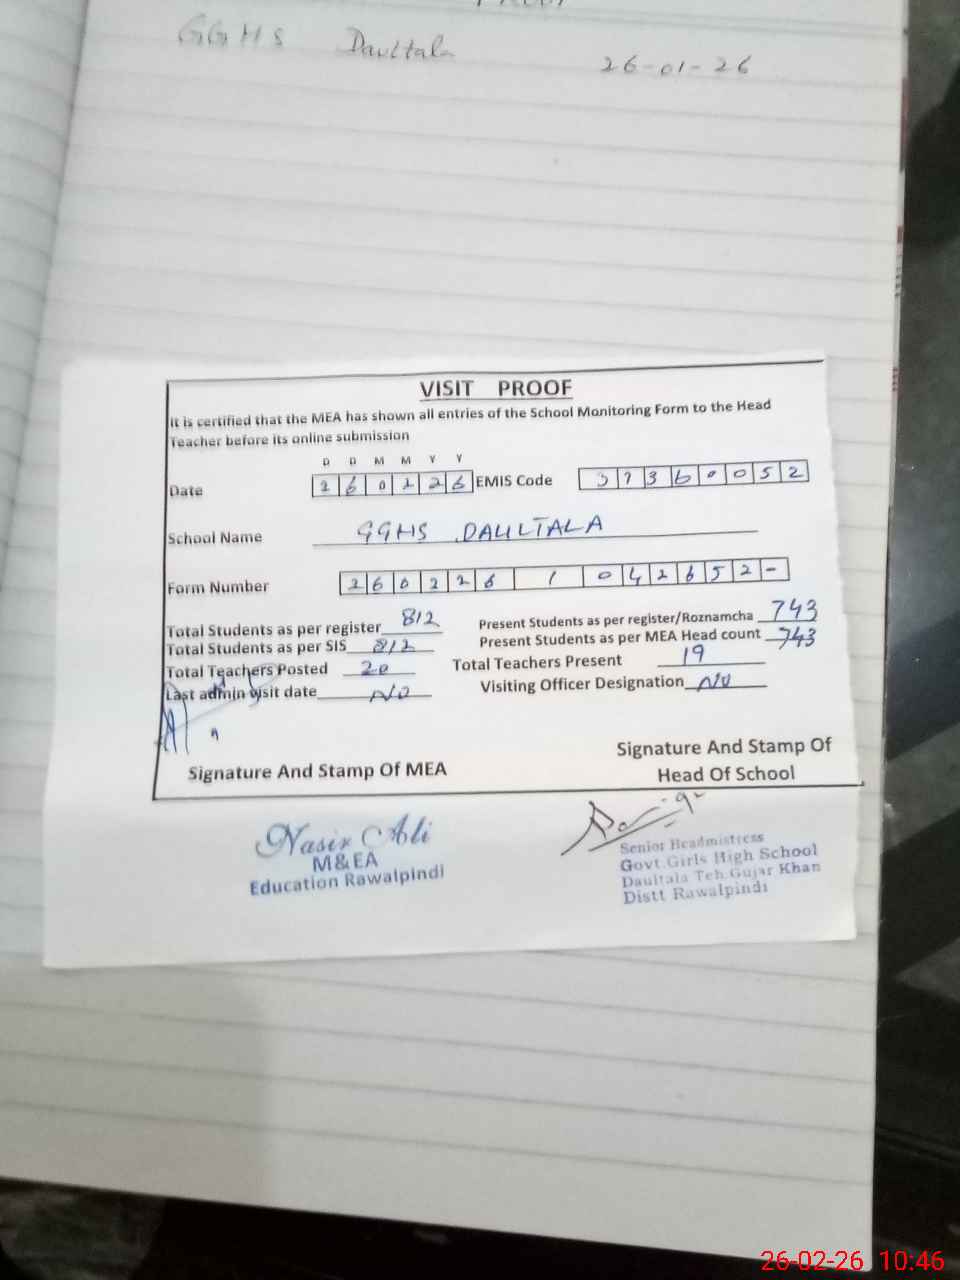 GGHS Daultala 26-01-26
VISIT PROOF
It is certified that the MEA has shown all entries of the School Monitoring Form to the Head
Teacher before its online submission
D D M M Y Y
Date 260226 EMIS Code 37360052
School Name GGHS DAULTALA
Form Number 260226 1 042652-
Total Students as per register 812 Present Students as per register/Roznamcha 743
Total Students as per SIS 812 Present Students as per MEA Head count 743
Total Teachers Posted 20 Total Teachers Present 19
Last admin visit date NO Visiting Officer Designation NO
Signature And Stamp Of MEA Signature And Stamp Of
Head Of School
Nasir Ali
M&EA
Education Rawalpindi
Senior Headmistress
Govt.Girls High School
Daultala Teh.Gujar Khan
Distt Rawalpindi
26-02-26 10:46